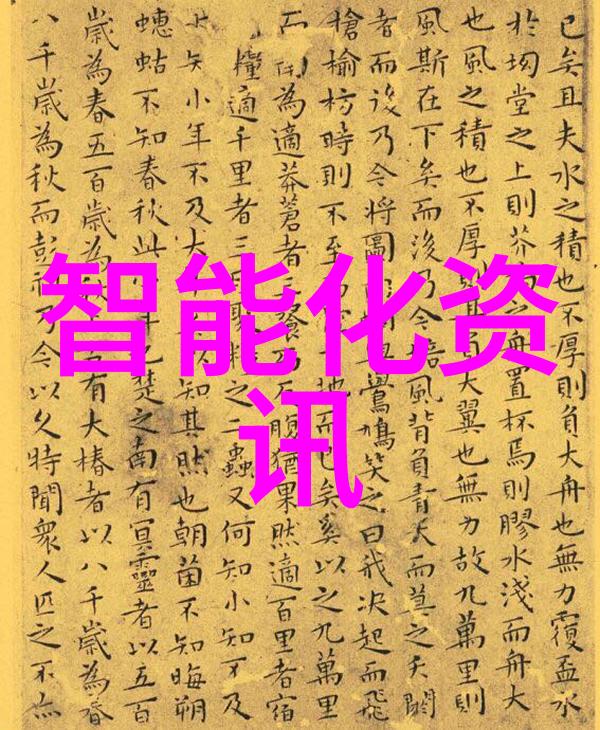 已矣且夫水之積也不厚則負大舟也無力覆盃水
於坳堂之上則芥之舟置杯焉則膠水淺而舟大
也風之積也不厚則負大翼也無力故九萬里則
風斯在下矣而後乃今培風背負青天而莫之夭閼
者而後乃今將圖鷽鳩笑之曰我決起而飛
槍榆枋時則不至地而已矣奚以之九萬里
而為適莽蒼者飡乃反腹猶果然適百里者宿
糧適千里者三聚糧之二蟲又何知小知不及
大知小年不及大以知其然也朝菌不知晦朔
蟪蛄不知春秋此年也楚之南有冥靈者以五百
歲為春五百歲為古有大椿者以八千歲為春
八千歲為秋而彭祖乃今以久特聞衆人匹之不亦
智能化资
讯